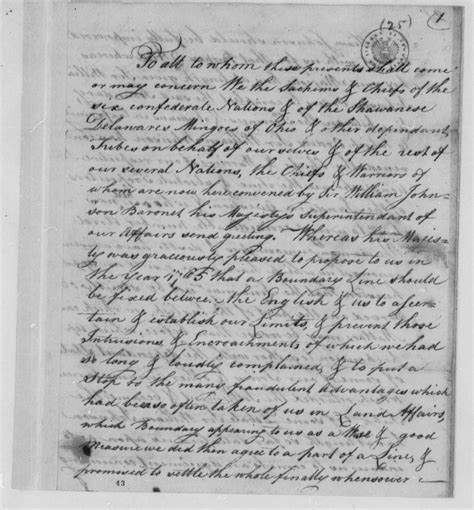 (25)
1
To all to whom these presents shall come
or may concern We the Sachims & Chiefs of the
six confederate Nations & of the Shawanese
Delawares Mingoes of Ohio & other dependant
Tribes on behalf of ourselves & of the rest of
our several Nations, the Chiefs & Warriors of
whom are now here convened by Sir William John-
son Baronet his Majestys Superintendant of
our Affairs send greeting. Whereas his Majes-
ty was graciously pleased to propose to us in
the Year 1765 that a Boundary Line should
be fixed between the English & us to ascer-
tain & establish our Limits, & prevent those
Intrusions & Encroachments of which we had
so long & loudly complained, & to put a
Stop to the many fraudulent advantages which
had been so often taken of us in Land Affairs,
which Boundary appearing to us as a Wise & good
Measure we did then agree to a part of a Line, &
promised to settle the whole finally whensoever
43